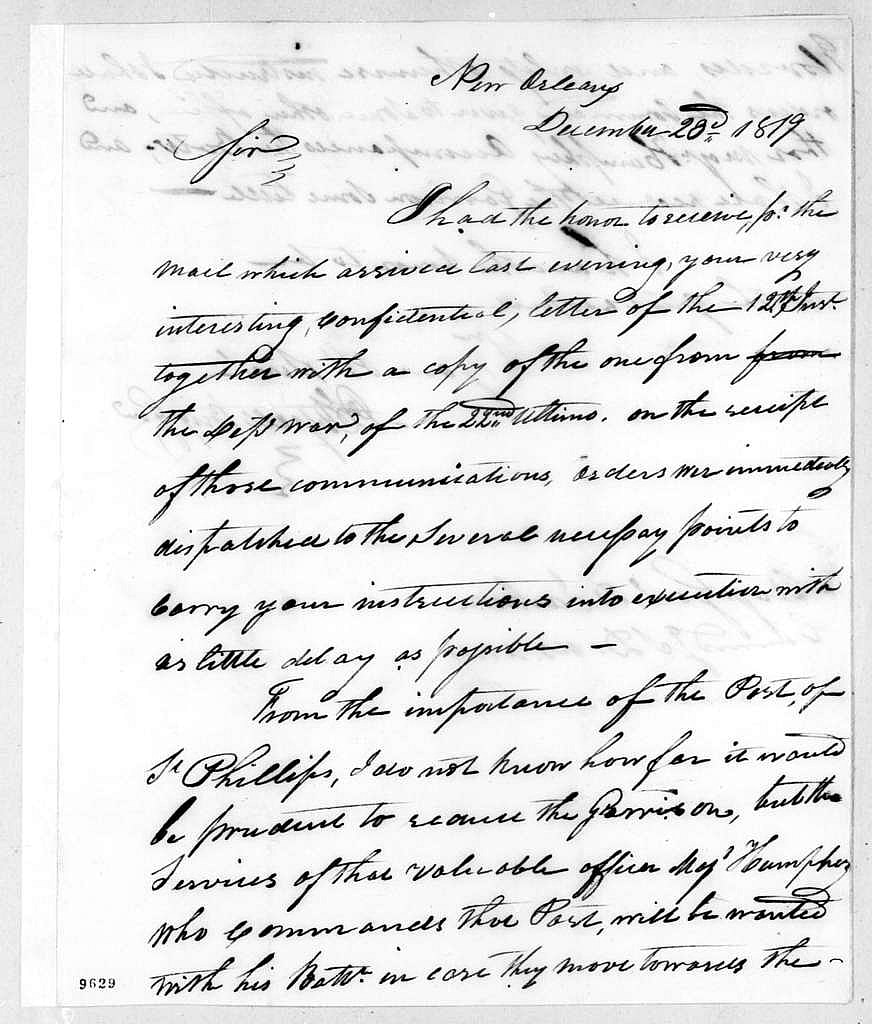 New Orleans
December 23d. 1819
Sir
I had the honor to receive, pr. the
mail which arrived last evening, your very
interesting, Confidential, letter of the 12th Inst.
together with a copy of the one from from
the Dept War, of the 22nd Ultimo. on the receipt
of those communications, orders wer immediately
dispatched to the Several necessary points to
Carry your instructions into execution with
as little delay as possible —
From the importance of the Post, of
St Phillips, I do not know how far it would
be prudent to reduce the Garrison, but the
Services of that valuable officer Majr Humphrey
who Commands that Post, will be wanted
with his Batty. in case they move towards the –
9629